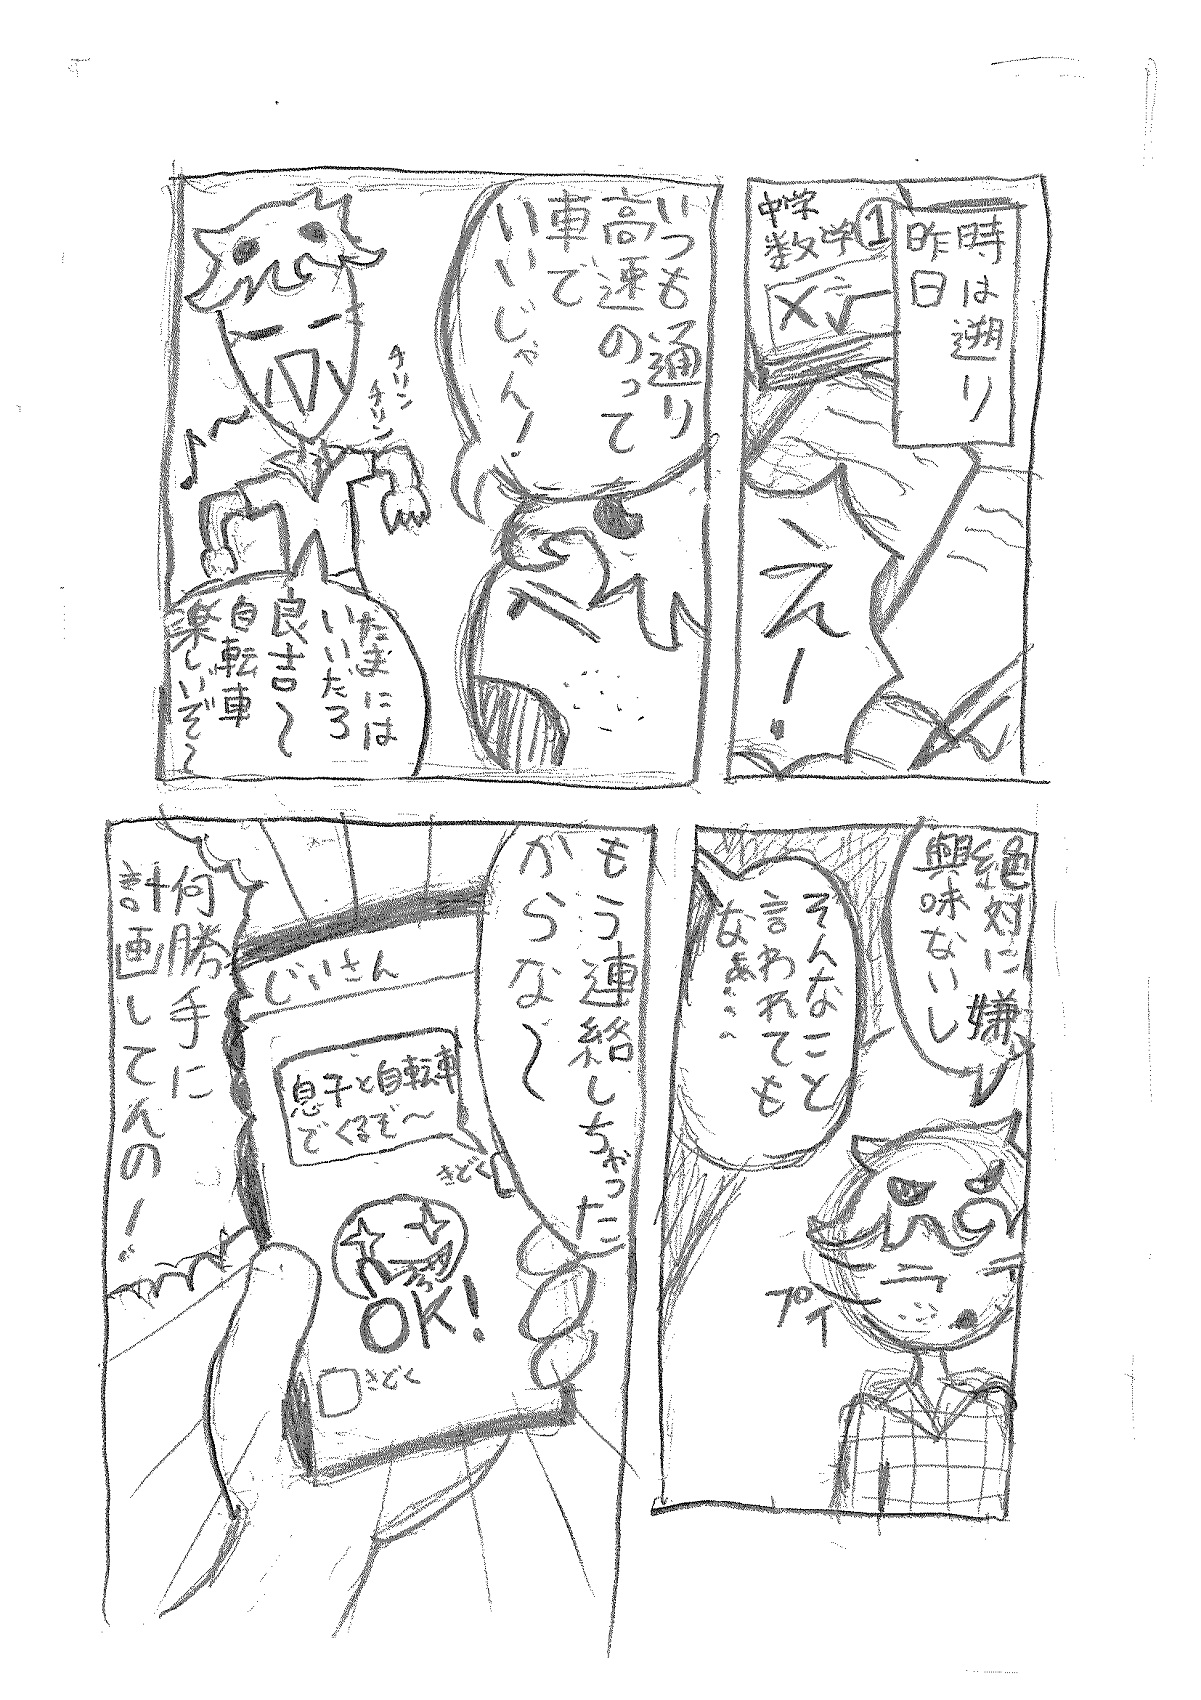 時は遡り
昨日
中学
数学①
×√
えー!
いつも通り
高速のって
車で
いいじゃん!
チリン
チリン
たまには
いいだろ
良吉〜
自転車
楽しいぞ〜
絶対に嫌
興味ないし
そんなこと
言われても
なぁ…
プイ
もう連絡しちゃった
からな〜
じいさん
息子と自転車
でくるぞ〜
きどく
OK!
きどく
何勝手に
計画してんの!!